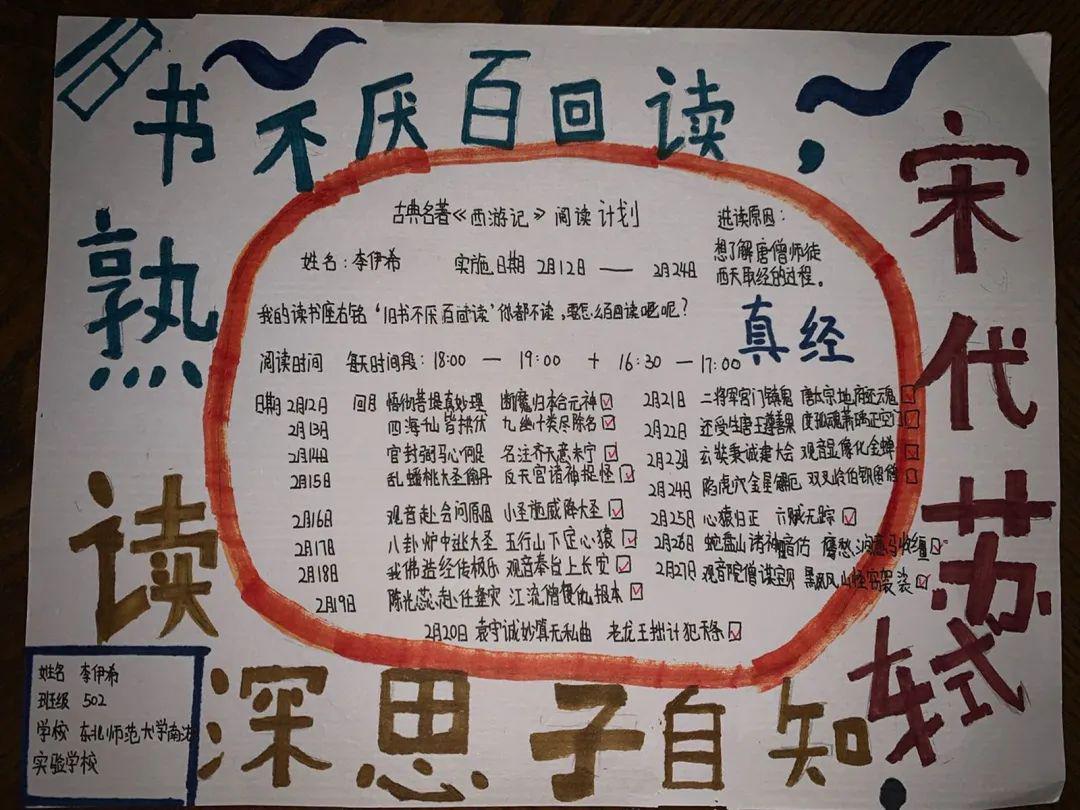 书不厌百回读，
熟读
深思子自知
宋代苏轼
古典名著《西游记》阅读计划
选读原因：
想了解唐僧师徒
西天取经的过程。
姓名：李伊希 实施日期 2月12日 — 2月24日
我的读书座右铭 你都不读
真经
阅读时间 每天时间段：18:00 — 19:00 + 16:30 — 17:00
日期 2月12日 回目 悟彻菩提真妙理 断魔归本合元神
2月13日 四海千山皆拱伏 九幽十类尽除名
2月14日 官封弼马心何足 名注齐天意未宁
2月15日 乱蟠桃大圣偷丹 反天宫诸神捉怪
2月16日 观音赴会问原因 小圣施威降大圣
2月17日 八卦炉中逃大圣 五行山下定心猿
2月18日 我佛造经传极乐 观音奉旨上长安
2月19日 陈光蕊赴任逢灾 江流僧复仇报本
2月20日 袁守诚妙算无私曲 老龙王拙计犯天条
2月21日 二将军宫门镇鬼 唐太宗地府还魂
2月22日 还受生唐王尊善果 度孤魂萧瑀正空门
2月23日 玄奘秉诚建大会 观音显像化金蝉
2月24日 陷虎穴金星解厄 双叉岭伯钦留僧
2月25日 心猿归正 六贼无踪
2月26日 蛇盘山诸神暗佑 意马收缰
2月27日 观音院僧谋宝贝 黑风山怪窃袈裟
姓名 李伊希
班级 502
学校 东北师范大学南
实验学校